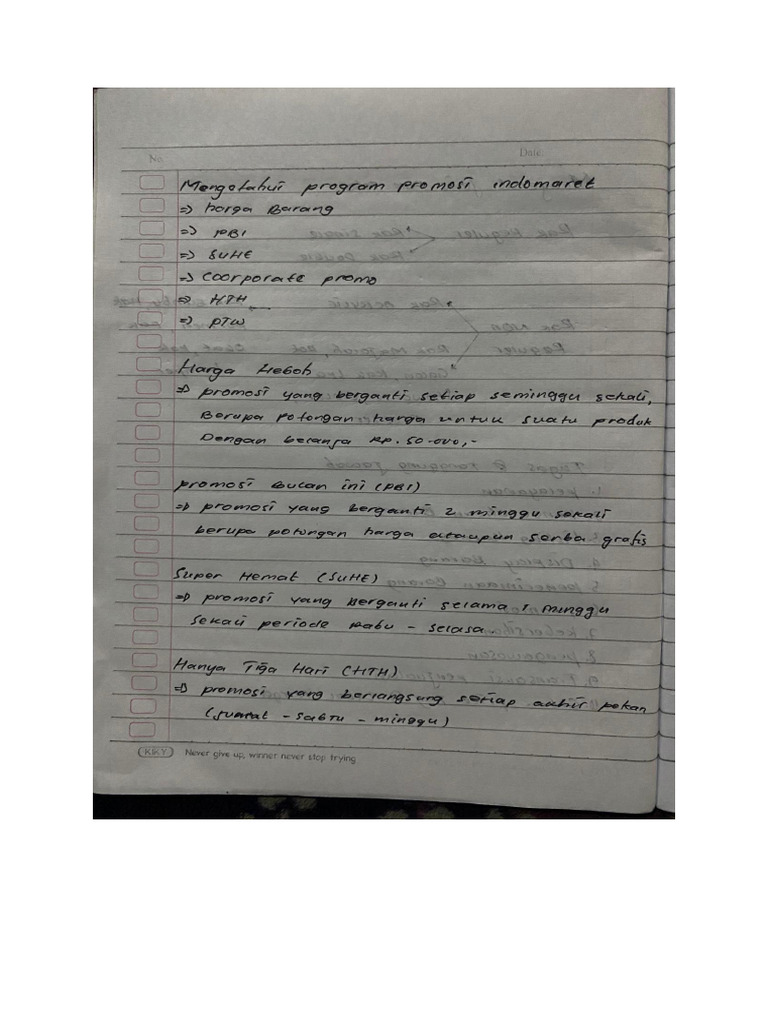 No.
Date:
Mengetahui program promosi indomaret
=> harga Barang
=> PBI
=> SUHE
=> Coorporate promo
=> HTH
=> PTW
Harga Heboh
=> promosi yang berganti setiap seminggu sekali,
Berupa potongan harga untuk suatu produk
Dengan belanja Rp. 50.000,-
promosi bulan ini (PBI)
=> promosi yang berganti 2 minggu sekali
berupa potongan harga ataupun serba gratis
Super Hemat (SUHE)
=> promosi yang berganti selama 1 minggu
sekali periode Rabu - selasa.
Hanya Tiga Hari (HTH)
=> promosi yang berlangsung setiap akhir pekan
(Jumat - sabtu - minggu)
KIKY Never give up, winner never stop trying